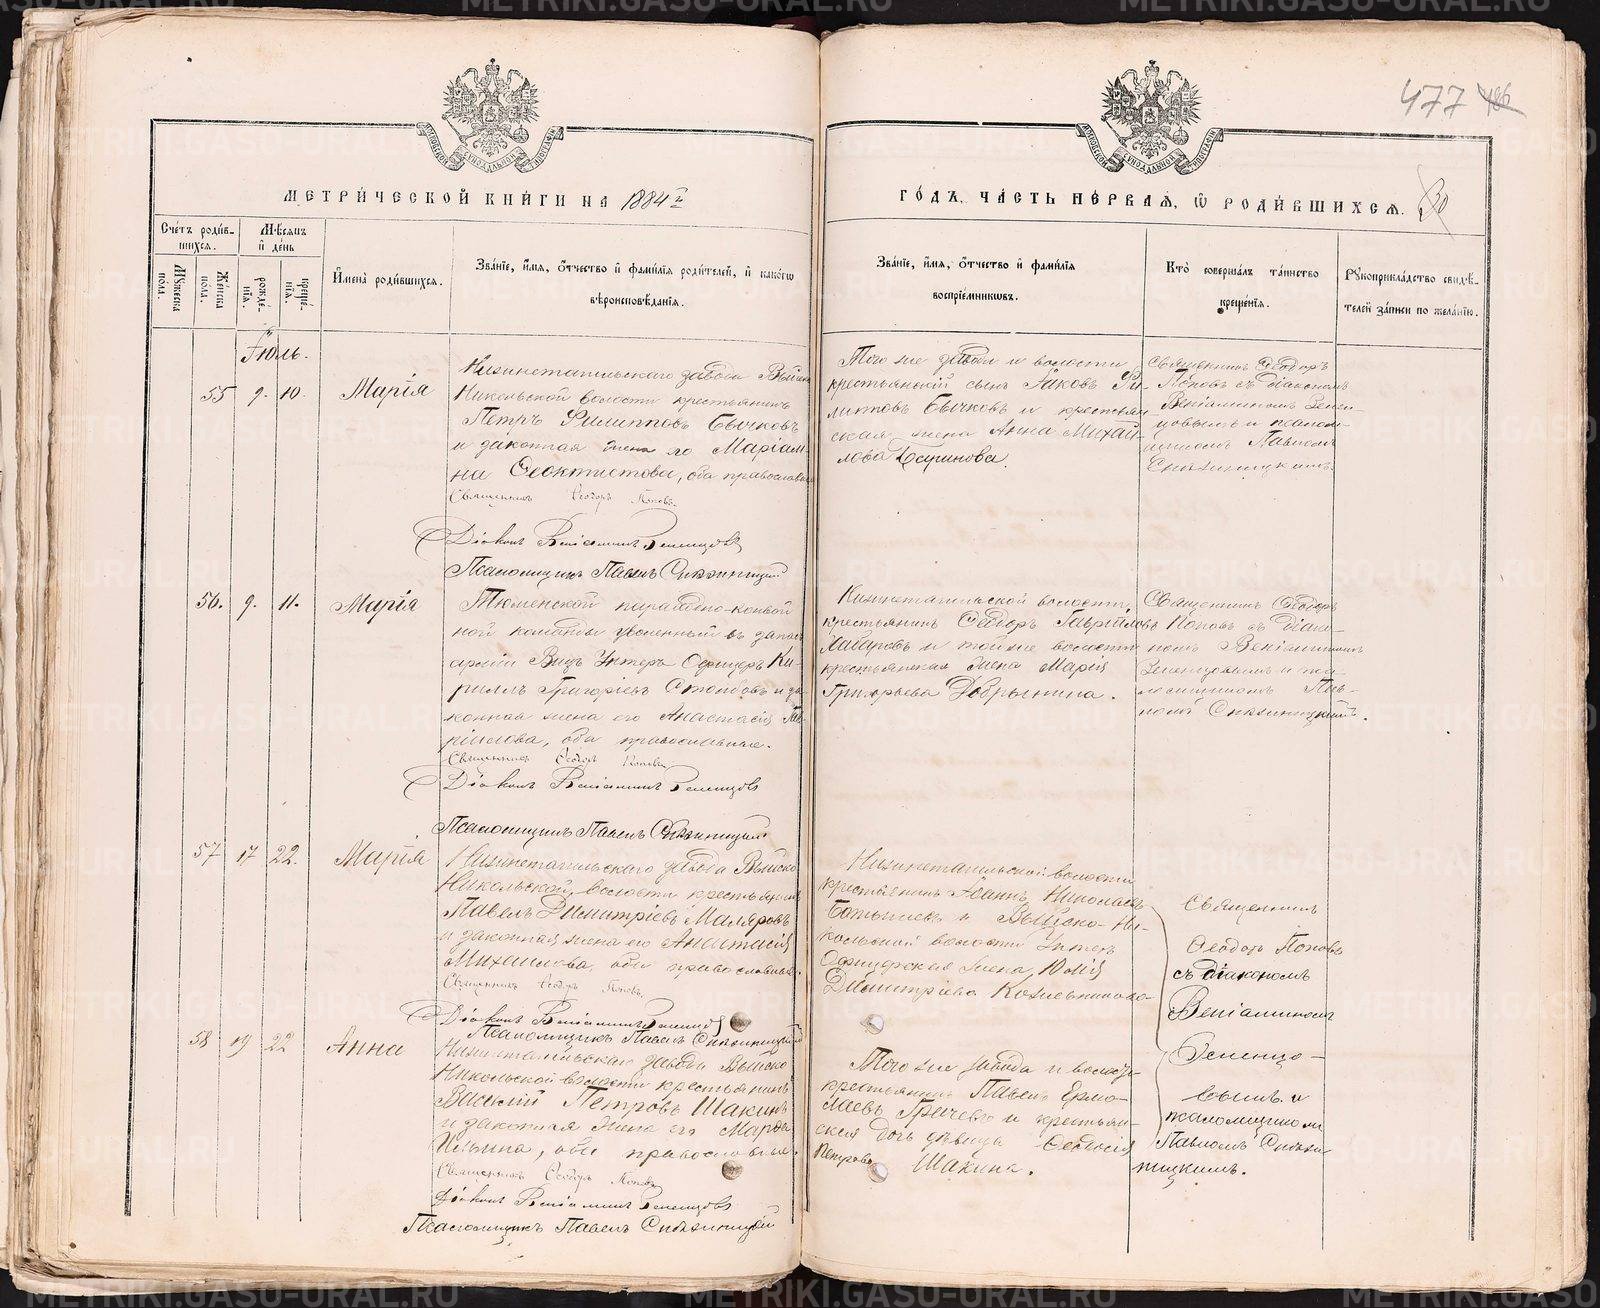 477 486
МЕТРИ́ЧЕСКОЙ КНИ́ГИ НА 1884й
ГО́ДЪ, ЧА́СТЬ ПЕ́РВАЯ, Ѡ РОДИ́ВШИХСЯ. 30
Сче́тъ роди́в-
шихся.
Му́жеска
пола.
Же́нска
по́ла.
Мѣсяцъ
и де́нь
рожде́-
нїя.
креще́-
нїя.
И҆мена̀ роди́вшихся.
Зва́нїе, и҆́мя, о҆́тчество и҆ фами́лїя роди́телей, и҆ како́гѡ
вѣроисповѣ́данїя.
Зва́нїе, и҆́мя, о҆́тчество и҆ фами́лїя
воспрїе́мникѡвъ.
Кто̀ соверша́лъ та́инство
креще́нїя.
Рꙋкоприкла́дство свидѣ́-
телей за́писи по жела́нїю.
Іюль.
55 9. 10. Марія
Нижнетагильскаго завода Выйско
Никольской волости крестьянинъ
Петръ Филипповъ Бычковъ
и законная жена его Маріам-
на Ѳеоктистова, оба православные
Священникъ Ѳеодоръ Поповъ.
Діаконъ Веніаминъ Зеленцовъ
Псаломщикъ Павелъ
Того же завода и волости
крестьянскій сынъ Яковъ Фи-
липповъ Бычковъ и крестьян-
ская жена Анна Михай-
лова
Священникъ Ѳеодоръ
Поповъ съ діакономъ
Веніаминомъ Зелен-
цовымъ и псалом-
щикомъ Павломъ
56. 9. 11. Марія
Тюменской
ной команды уволенный въ запасъ
арміи Унтеръ Офицеръ Ки-
риллъ Григорьевъ Столбовъ и за-
конная жена его Анастасія Гав-
риилова, оба православные.
Священникъ Ѳеодоръ Поповъ
Діаконъ Веніаминъ Зеленцовъ
Псаломщикъ Павелъ
Нижнетагильской волости
крестьянинъ Ѳеодоръ Гавріиловъ
Хабаровъ и тойже волости
крестьянская жена Марія
Григорьева Добрынина.
Священникъ Ѳеодоръ
Поповъ съ діако-
номъ Веніаминомъ
Зеленцовымъ и пса-
ломщикомъ Пав-
ломъ
57 17 22. Марія
Нижнетагильскаго завода Выйско
Никольской волости крестьянинъ
Павелъ Димитріевъ Маляровъ
и законная жена его Анастасія
Михайлова, оба православные.
Священникъ Ѳеодоръ Поповъ.
Діаконъ Веніаминъ Зеленцовъ
Псаломщикъ Павелъ
Нижнетагильской волости
крестьянинъ Іоаннъ Николаевъ
и Выйско-Ни-
кольской волости Унтеръ
Офицерская жена, Юлія
Димитріева Кожевникова
Священникъ
Ѳеодоръ Поповъ
съ діакономъ
Веніаминомъ
Зеленцо-
вымъ и
псаломщикомъ
Павломъ
58 19 22 Анна
Нижнетагильскаго завода Выйско
Никольской волости крестьянинъ
Василій Петровъ Шакинъ
и законная жена его Марѳа
Ильина, оба православные.
Священникъ Ѳеодоръ Поповъ
Діаконъ Веніаминъ Зеленцовъ
Псаломщикъ Павелъ
Того же завода и волости
крестьянинъ Павелъ Ермо-
лаевъ и крестьян-
ская дочь дѣвица Ѳеодосія
Петрова Шакина.
METRIKI.GASO-URAL.RU